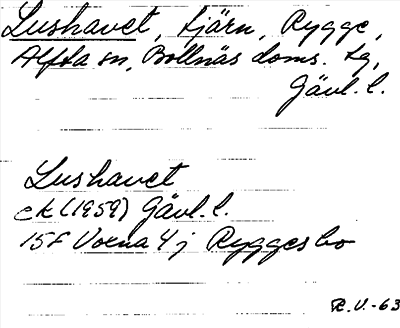 Lushavet, tjärn, Rygge,
Alfta sn, Bollnäs doms. tg,
Gävl. l.
Lushavet
ek (1959) Gävl. l.
15F Voxna 4 j Ryggesbo
R.U.-63